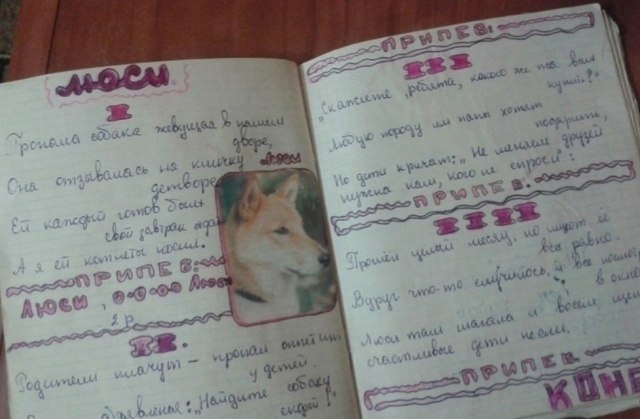 ЛЮСИ
I
Пропала собака жевущая в нашем
дворе,
Она отзывалась на кличку Люси
детворе
Ей каждый готов был
свой завтрак отдать
А я ей котлеты носил.
ПРИПЕВ:
Люси, о-о-оо Люси
2 р.
II.
Родители плачут – пропал аппетит
у детей.
"Найдите собаку
скорей!"
ПРИПЕВ:
III
"Скажите, ребята, какого же пса вам
купить?"
Любую породу им папы хотят
подарить,
Но дети кричат: "Не меняем друзей
нужна нам, кого не спроси":
ПРИПЕВ:
IIII
Прошёл целый месяц, но ищют её
все равно.
Вдруг что-то случилось, и все
в окно
Люси там шагала и восемь
счастливые дети несли.
ПРИПЕВ
КОНЕ